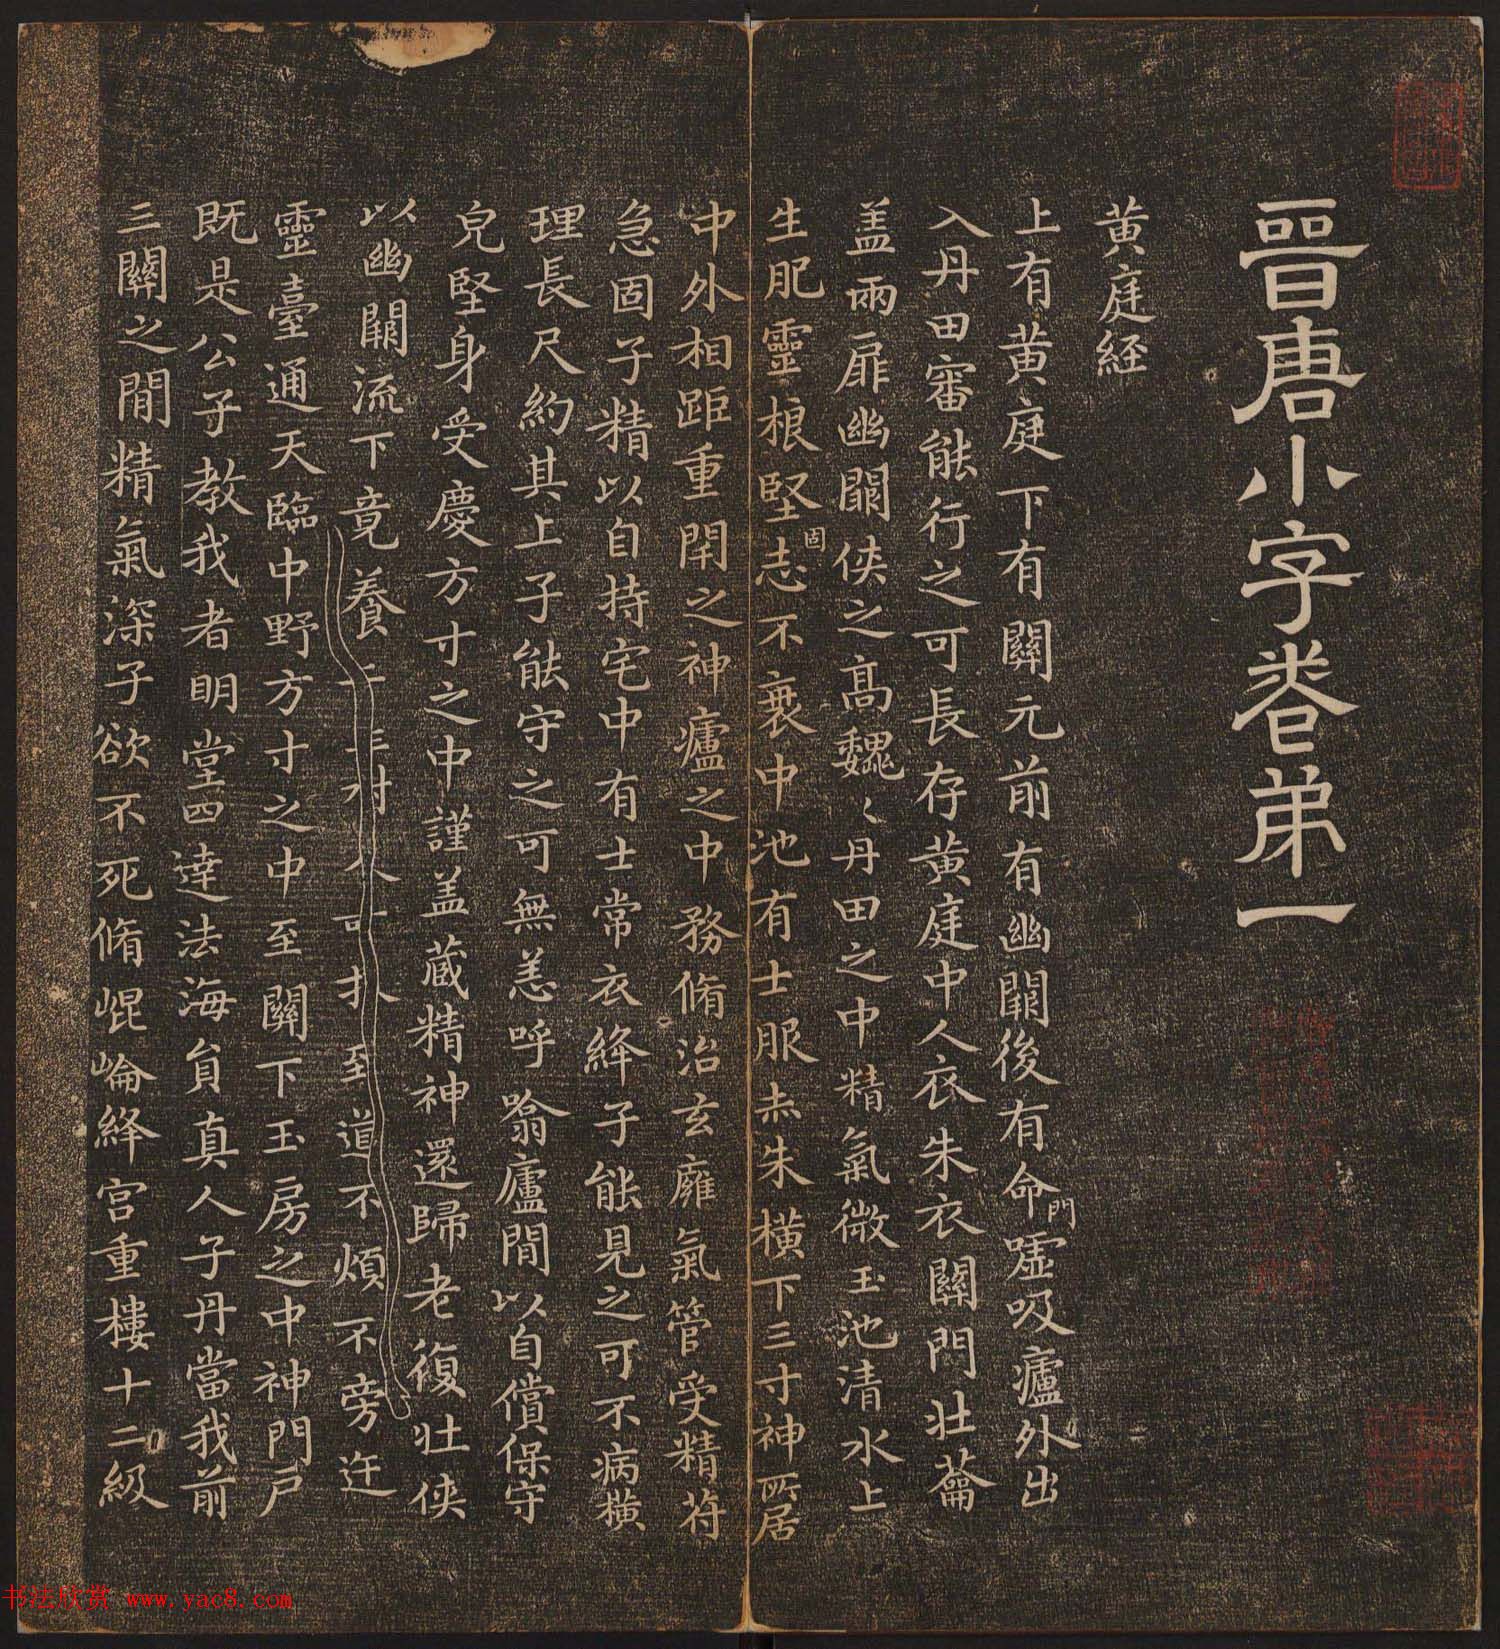 晉唐小字卷第一
黄庭経
上有黄庭下有關元前有幽闕後有命門嘘吸廬外出
入丹田審能行之可長存黄庭中人衣朱衣關門壮蘥
盖兩扉幽闕侠之髙魏〻丹田之中精氣微玉池清水上
生肥靈根堅固志不衰中池有士服赤朱横下三寸神所居
中外相距重閉之神廬之中務脩治玄廱氣管受精苻
急固子精以自持宅中有士常衣絳子能見之可不病横
理長尺約其上子能守之可無恙呼噏廬間以自償保守
皃堅身受慶方寸之中謹盖蔵精神還歸老復壮侠
以幽闕流下竟養子玉樹令可扶至道不煩不旁迕
靈臺通天臨中野方寸之中至關下玉房之中神門戸
既是公子教我者明堂四達法海員真人子丹當我前
三關之間精氣深子欲不死脩崐崘絳宫重樓十二級
书法欣赏 www.yac8.com